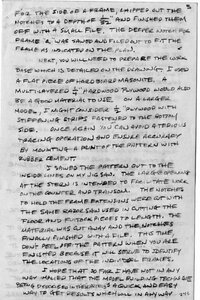 FOR THE SIDE OF A FRAME, CHIPPED OUT THE
NOTCHES TO A DEPTH OF AND FINISHED THEM
OFF WITH A SMALL FILE. THE DEEPER NOTCH FOR
FRAME WAS SAWED AND FILED OUT TO FIT THE
FRAME AS INDICATED ON THE PLAN.
NEXT, YOU WILL NEED TO PREPARE THE WORK
BASE WHICH IS DETAILED ON THE DRAWING. I USED
A FLAT PIECE OF HARDBOARD MASONITE. A
MULTILAYERED 1/4" HARDWOOD PLYWOOD WOULD ALSO
BE A GOOD MATERIAL TO USE. ON A LARGER
MODEL, I MIGHT CONSIDER PLYWOOD WITH
STIFFENING STRIPS FASTENED TO THE BOTTOM
SIDE. ONCE AGAIN YOU CAN AVOID A TEDIOUS
TRACING OPERATION AND ENSURE ACCURACY
BY MOUNTING A PRINT OF THE PATTERN WITH
RUBBER CEMENT.
I SAWED THE PATTERN OUT TO THE
INSIDE LINES ON MY JIG SAW. THE LARGE OPENING
AT THE STERN IS INTENDED TO FACILITATE WORK
ON THE COUNTER AND TRANSOM. THE NOTCHES
TO HOLD THE FRAME EXTENSIONS WERE CUT WITH
THE SAME HAND SAW USED IN CUTTING THE
FLOOR AND FUTTOCK PIECES TO LENGTH. THE
MATERIAL WAS CUT AWAY AND THE NOTCHES
FINALLY FINISHED WITH A FILE. THIS TIME,
DON'T PEEL OFF THE PATTERN WHEN YOU ARE
FINISHED BECAUSE IT WILL SERVE TO IDENTIFY
THE LOCATIONS OF THE INDIVIDUAL FRAMES.
I HOPE THAT SO FAR I HAVE NOT IN ANY
WAY IMPLIED THAT THE MODEL BUILDING TECHNIQUE
BEING DISCUSSED IN THE IS A QUICK AND EASY
WAY TO GET RESULTS WHICH WILL IN ANY